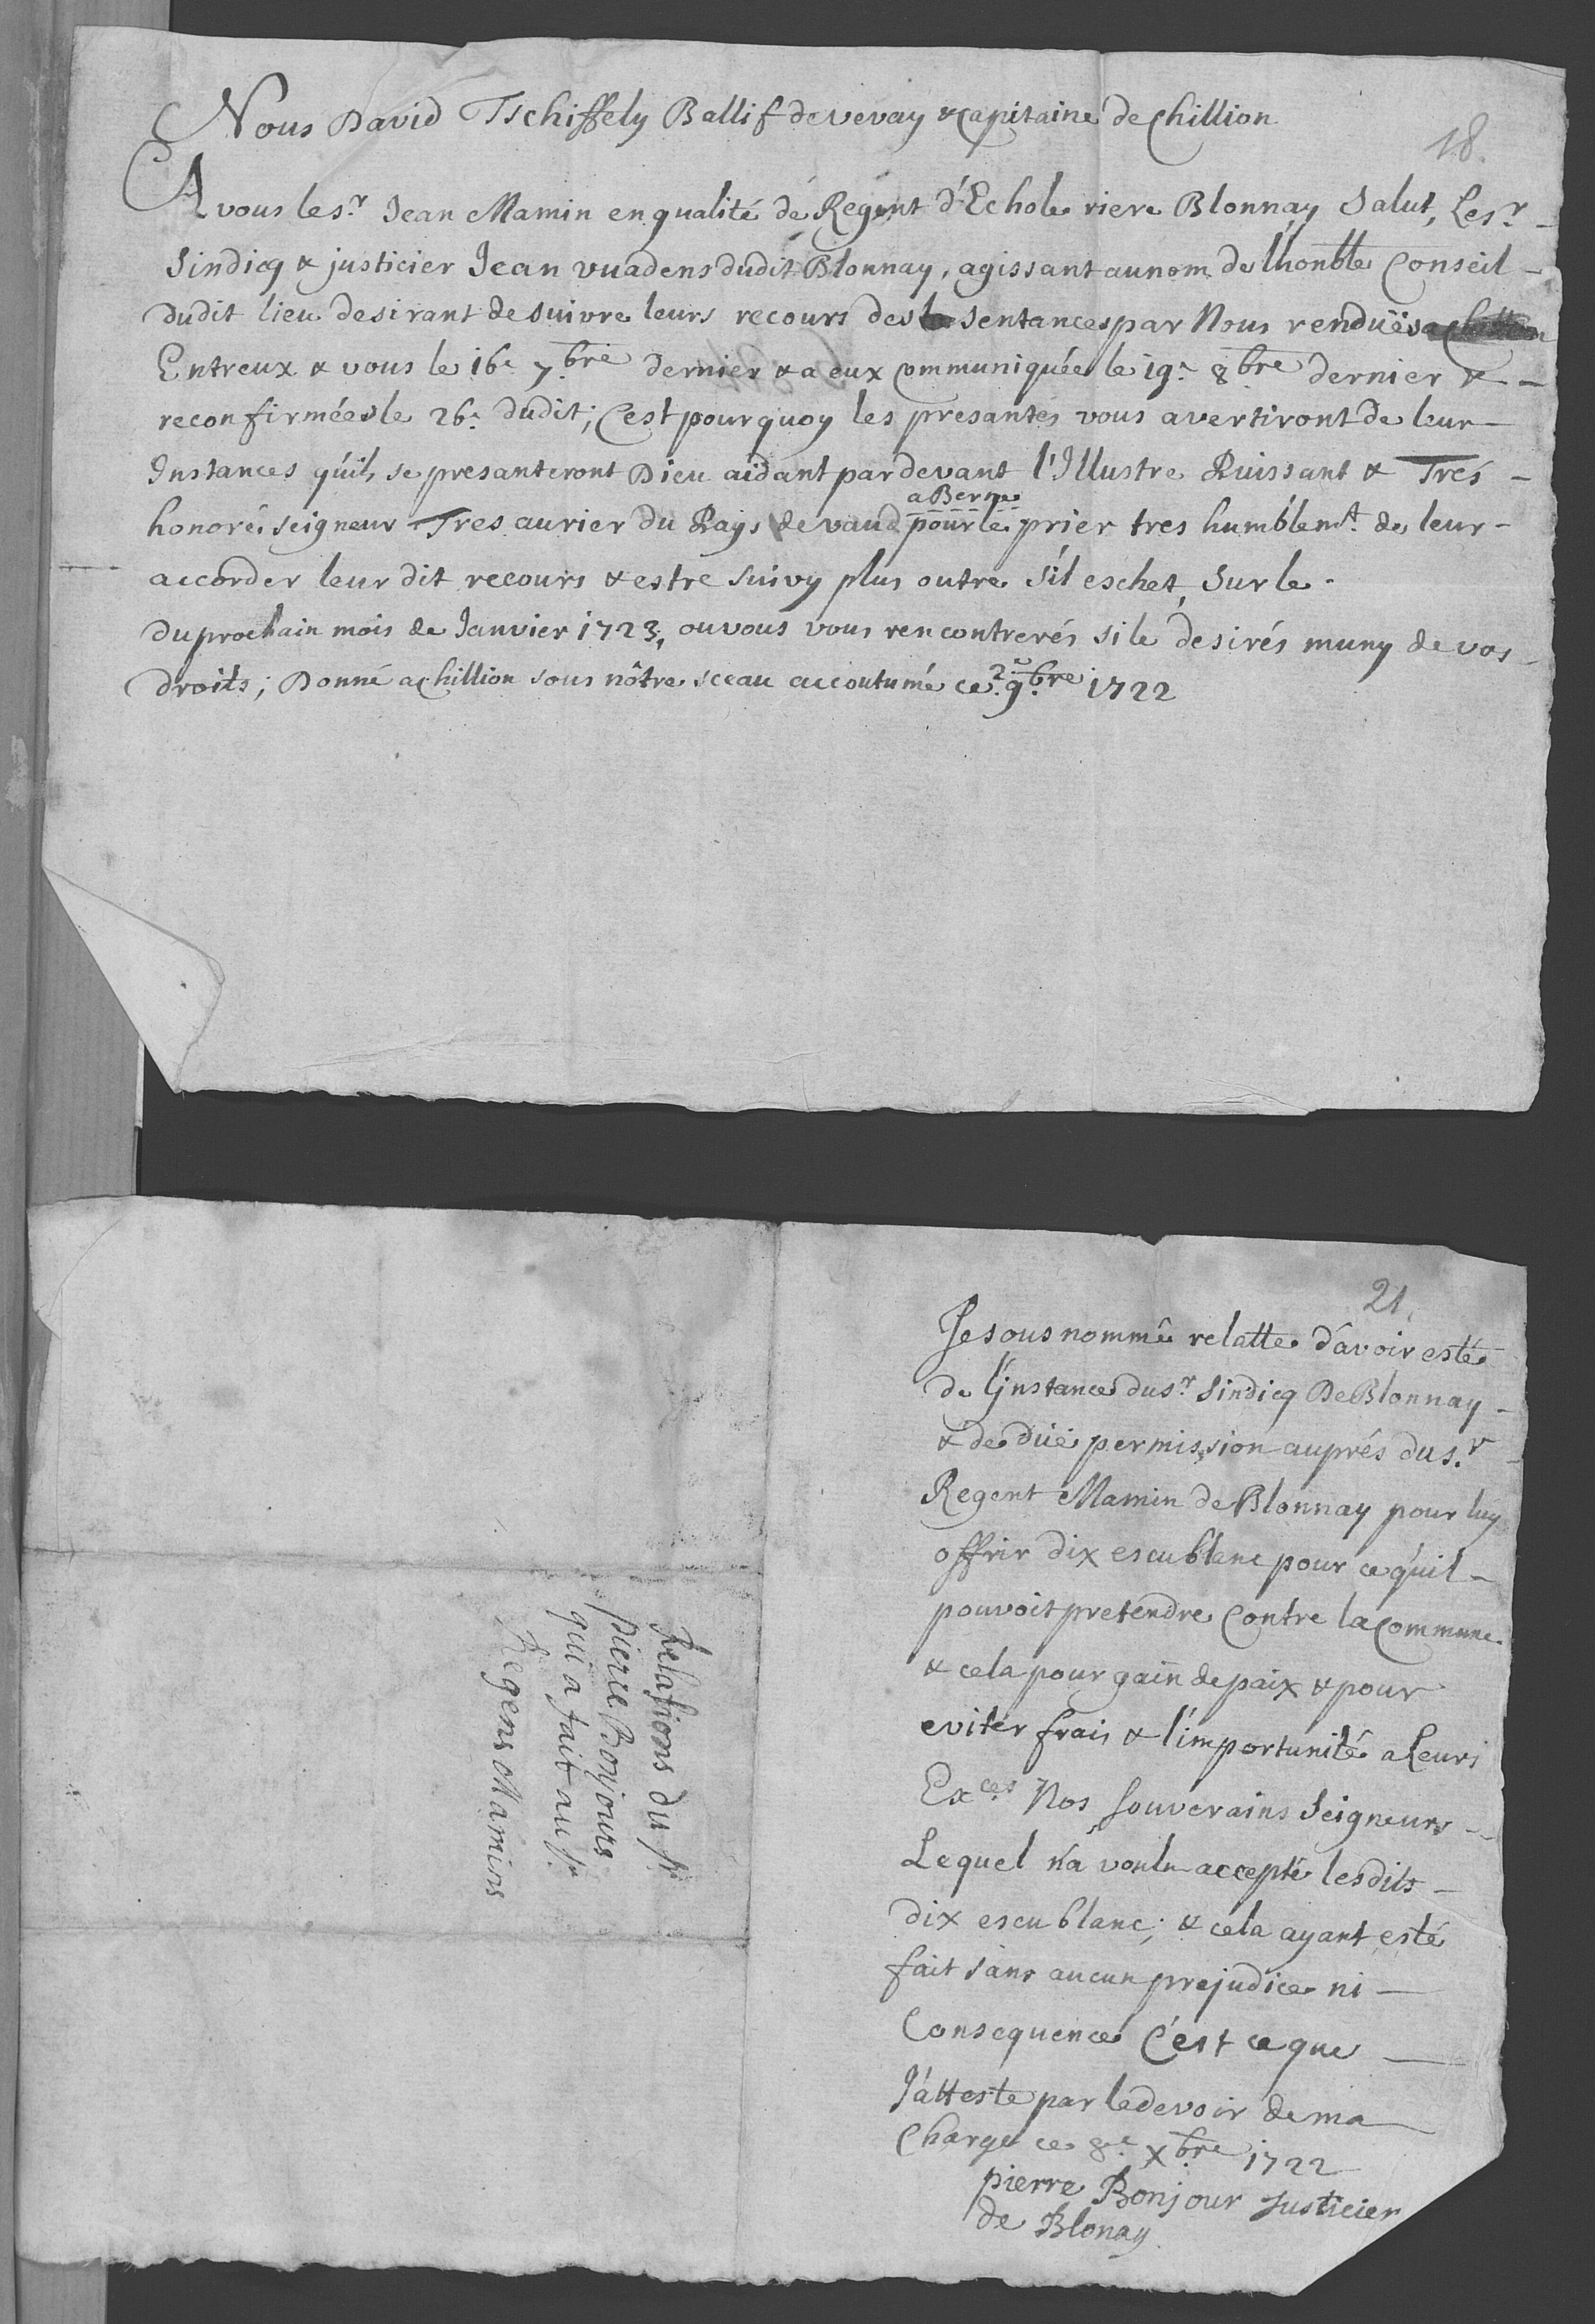 18.
Nous David Tschiffely Ballif de vevay & Capitaine de Chillion
A vous le s.r Jean Mamin en qualité de Regent d'Echole riere Blonnay Salut, Le s.r
Sindicq & justicier Jean vuadens dudit Blonnay, agissant au nom de l'honble Conseil
dudit lieu desirant de suivre leurs recours des sentances par Nous renduës
Entreux & vous le 16e 7.bre dernier & a eux communiquée le 19e 8bre dernier &
reconfirmées le 26e dudit; C'est pourquoy les presantes vous avertiront de leur
Instances qu'ils se presanteront Dieu aidant par devant l'Illustre Puissant & Trés
honoré seigneur Tresaurier du Pays de vaud a Berne pour le prier tres humblem.t de leur
accorder leur dit recours & estre suivy plus outre s'il eschet, Sur le
du prochain mois de Janvier 1723, ou vous vous rencontrerés si le desirés muny de vos
droits; Donné a Chillion sous nôtre sceau accoutumé ce 2e 9.bre 1722
21.
Je sous nommé relatte d'avoir esté
de l'jnstance du s.r Sindicq De Blonnay
& de düe permission auprés du s.r
Regent Mamin de Blonnay pour luy
offrir dix escu blanc pour ce qu'il
pouvoit pretendre Contre la Commune
& cela pour gain de paix & pour
eviter frais & l'importunité a Leurs
Ex.ces Nos souverains Seigneurs
Lequel n'a voulu accepté lesdits
dix escu blanc; & cela ayant esté
fait sans aucun prejudice ni
Consequence C'est ce que
J'atteste par le devoir de ma
Charge ce 8e X.bre 1722
pierre Bonjour Justicier
de Blonay
Relations du Sr
pierre Bonjours
qui a fait au Sr
Regens Mamins